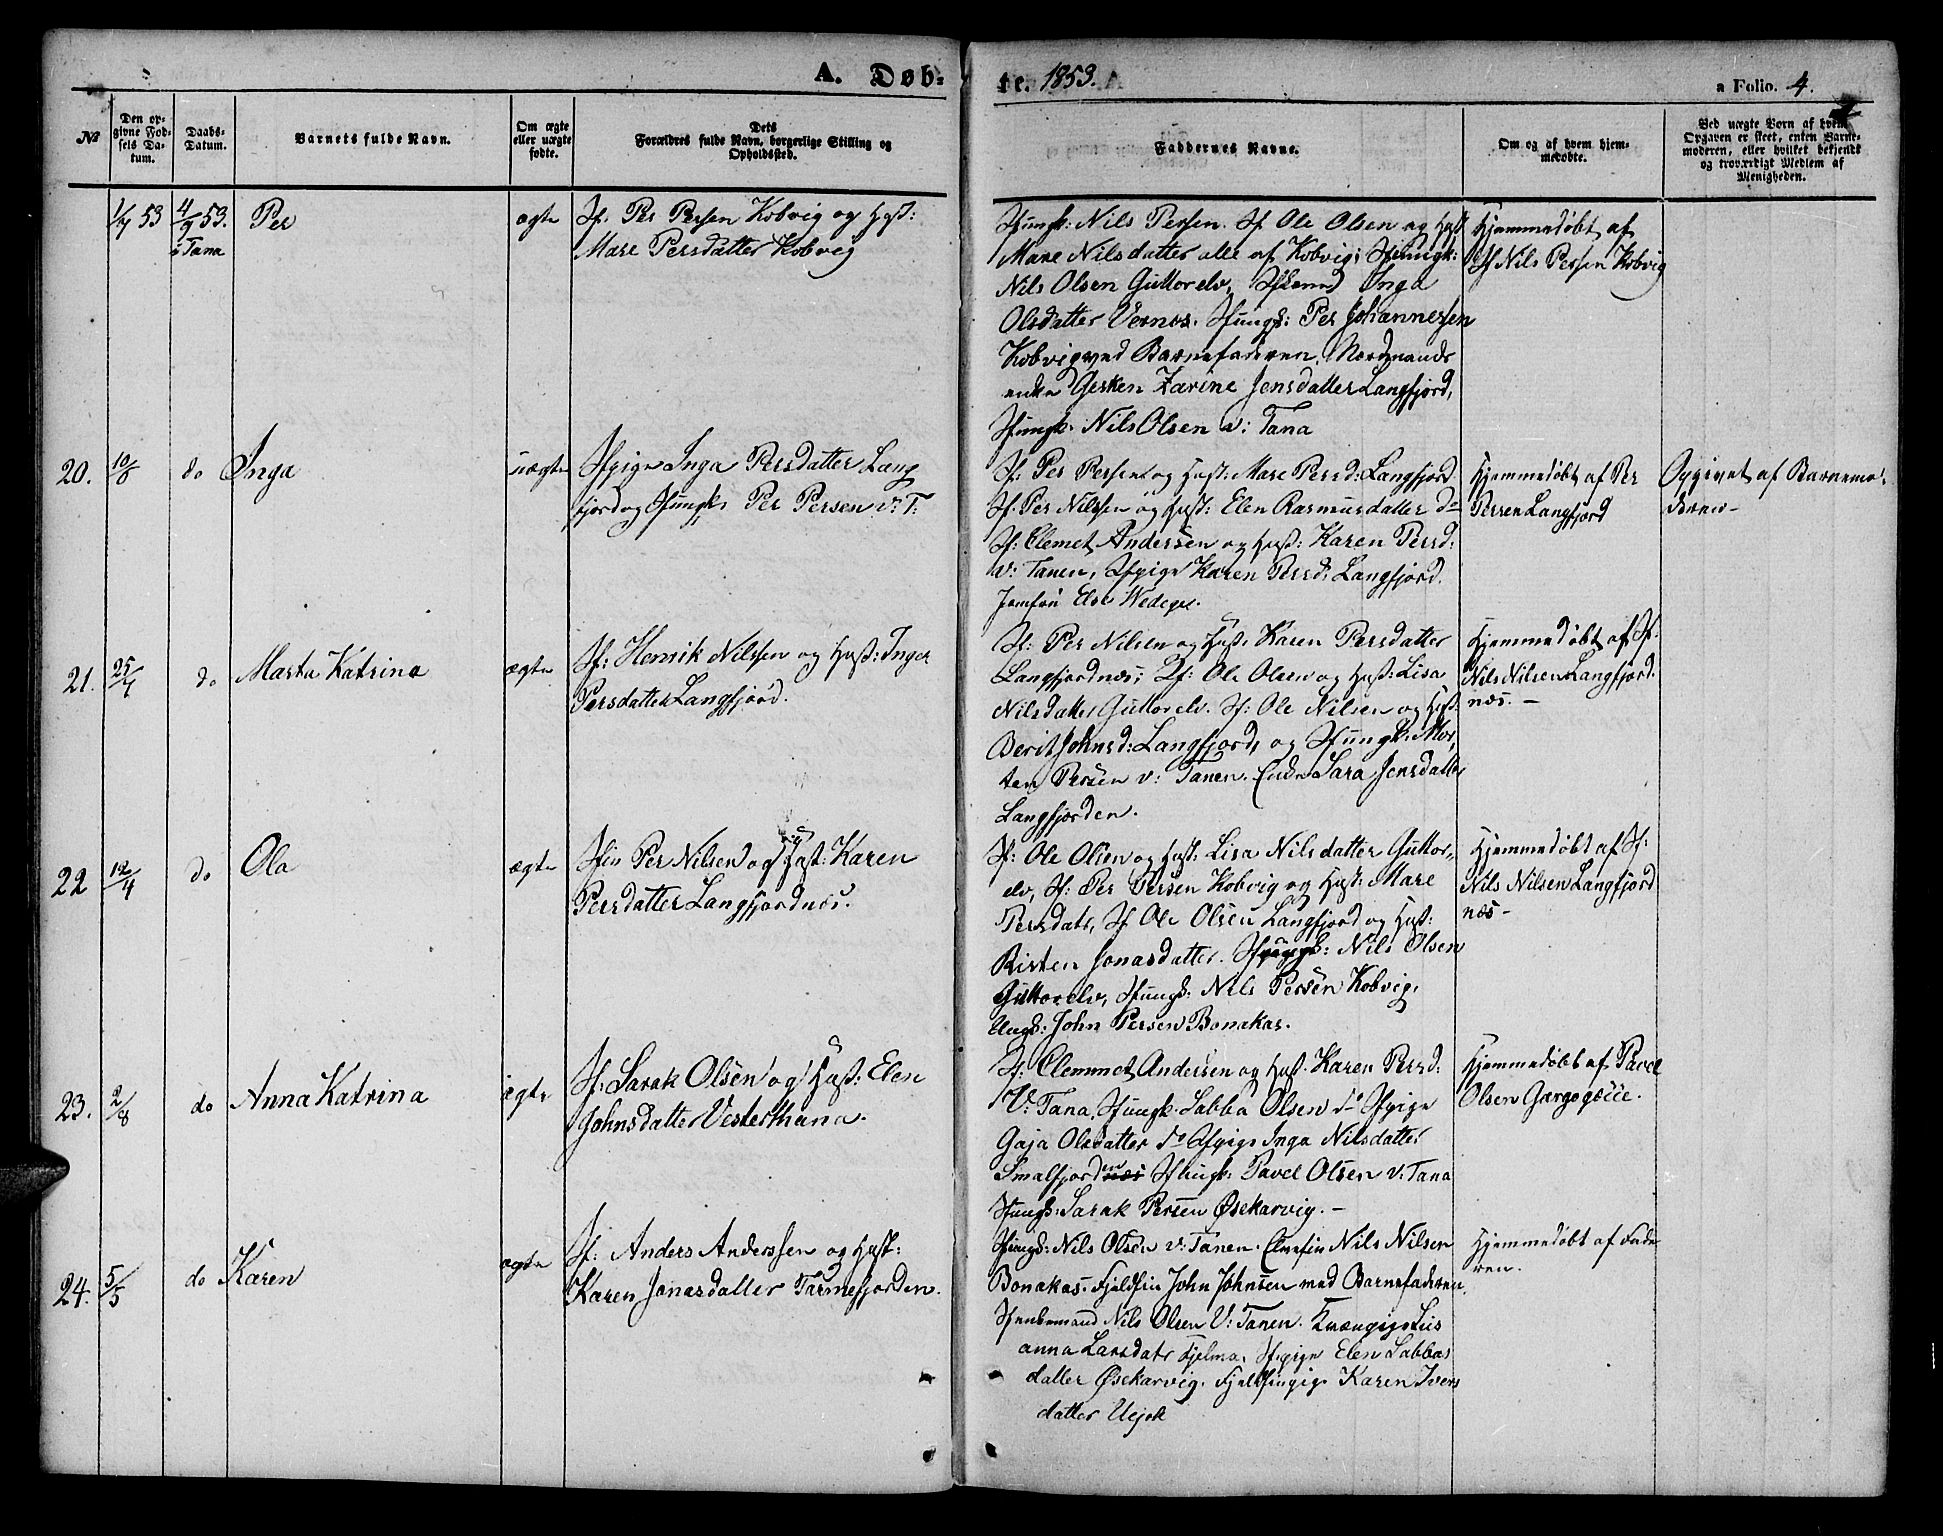 A. Døb-
te. 1853.
a Folio. 4.
№
Den op-
givne Fød-
sels Da-
tum.
Daabs-
Datum.
Barnets fulde Navn.
Om ægte
eller uægte
fødte.
Dets
Forældres fulde Navn, borgerlige Stilling og
Opholdssted.
Faddernes Navne.
Om og af hvem hjem-
medøbte.
Ved uægte Børn af hvem
Opgaven er skeet, enten Barne-
moderen, eller hvilket bekjendt
og troværdigt Medlem af
Menigheden.
53 4/9 53. Per ægte Sf. Per Persen Kobvig og Hust:
i Tana Mare Persdatter Kobvig
Sfungk: Nils Persen. Sf Ole Olsen og Hust
Mare Nilsdatter alle af Kobvig; Sfungk:
Nils Olsen Guttorelv, Inga
Olsdatter Vernes. Sfungk: Per Johannesen
Kobvig ved Barnefaderen, Nordmands
enke Gesken Zarine Jensdatter Langfjord,
Sfungk. Nils Olsen v: Tana
Hjemmedøbt af
Sf Nils Persen Kobvig
20. 10/8 do Inga uægte Sfpige Inga Persdatter Lang
fjord og Sfungk, Per Persen v: T:
Sf: Per Persen og Hust: Mare Persd: Langfjord
Sf. Per Nilssen og Hust: Elen Rasmusdatter do
Sf: Clemet Andersen og Hust: Karen Persd:
v: Tanen, Sfpige Karen Persd: Langfjord.
Jomfru Else Wedege.
Hjemmedøbt af Per
Persen Langfjord
Opgivet af Barnemo-
deren-
21. 25/4 do Marta Katrina ægte Sf: Henrik Nilssen og Hust: Inger
Persdatter Langfjord.
Sf: Per Nilsen og Hust: Karen Persdatter
Langfjordnæs; Sf: Ole Olsen og Hust: Lisa
Nilsdatter Guttorelv. Sf: Ole Nilsen og Hust
Berit Johnsd: Langfjord, og Sfungk: Mor,
ten Persen v: Tanen. Enke Sara Jensdatter
Langfjorden.
Hjemmedøbt af Sf.
Nils Nilsen Langfjord
næs. -
22 12/4 do Ola ægte Sfin Per Nilsen og Hust: Karen
Persdatter Langfjordnæs.
Sf: Ole Olsen og Hust: Lisa Nilsdatter Guttor-
elv, Sf: Per Persen Kobvig og Hust: Mare
Persdatr, Sf Ole Olsen Langfjord og Hust:
Risten Jonasdatter. Sfungk: Nils Olsen
Guttorelv, Sfungk: Nils Persen Kobvig.
Ungk: John Persen Bonakas.
Hjemmedøbt af Sf:
Nils Nilsen Langfjord
næs-
23. 2/8 do Anna Katrina ægte Sf: Sarak Olsen og Hust: Elen
Johnsdatter Vesterthana.
Sf: Clemmet Andersen og Hust. Karen Persd:
V: Tana, Sfungk. Sabba Olsen do Sfpige
Gaja Olsdatter do Sfpige Inga Nilsdatter
Smalfjorden Sfungk: Pavel Olsen v: Tana
Sfungk: Sarak Persen Øsekarvig. -
Hjemmedøbt af Pavel
Olsen
24. 5/5 do Karen ægte Sf: Anders Anderssen og Hust:
Karen Jonasdatter Tarmefjorden.
Sfungk: Nils Olsen v: Tanen. Elvefin Nils Nilsen
Bonakas. Fjeldfin John Johnsen med Barnefaderen,
Nils Olsen V: Tanen. Kvænpige Lus
anna Larsdatr Fjelma, Sfpige Elen Sabbas
datter Øsekarvig. Fjeldfinpige Karen Ivers
datter Uejok
Hjemmedøbt af Fade
ren.